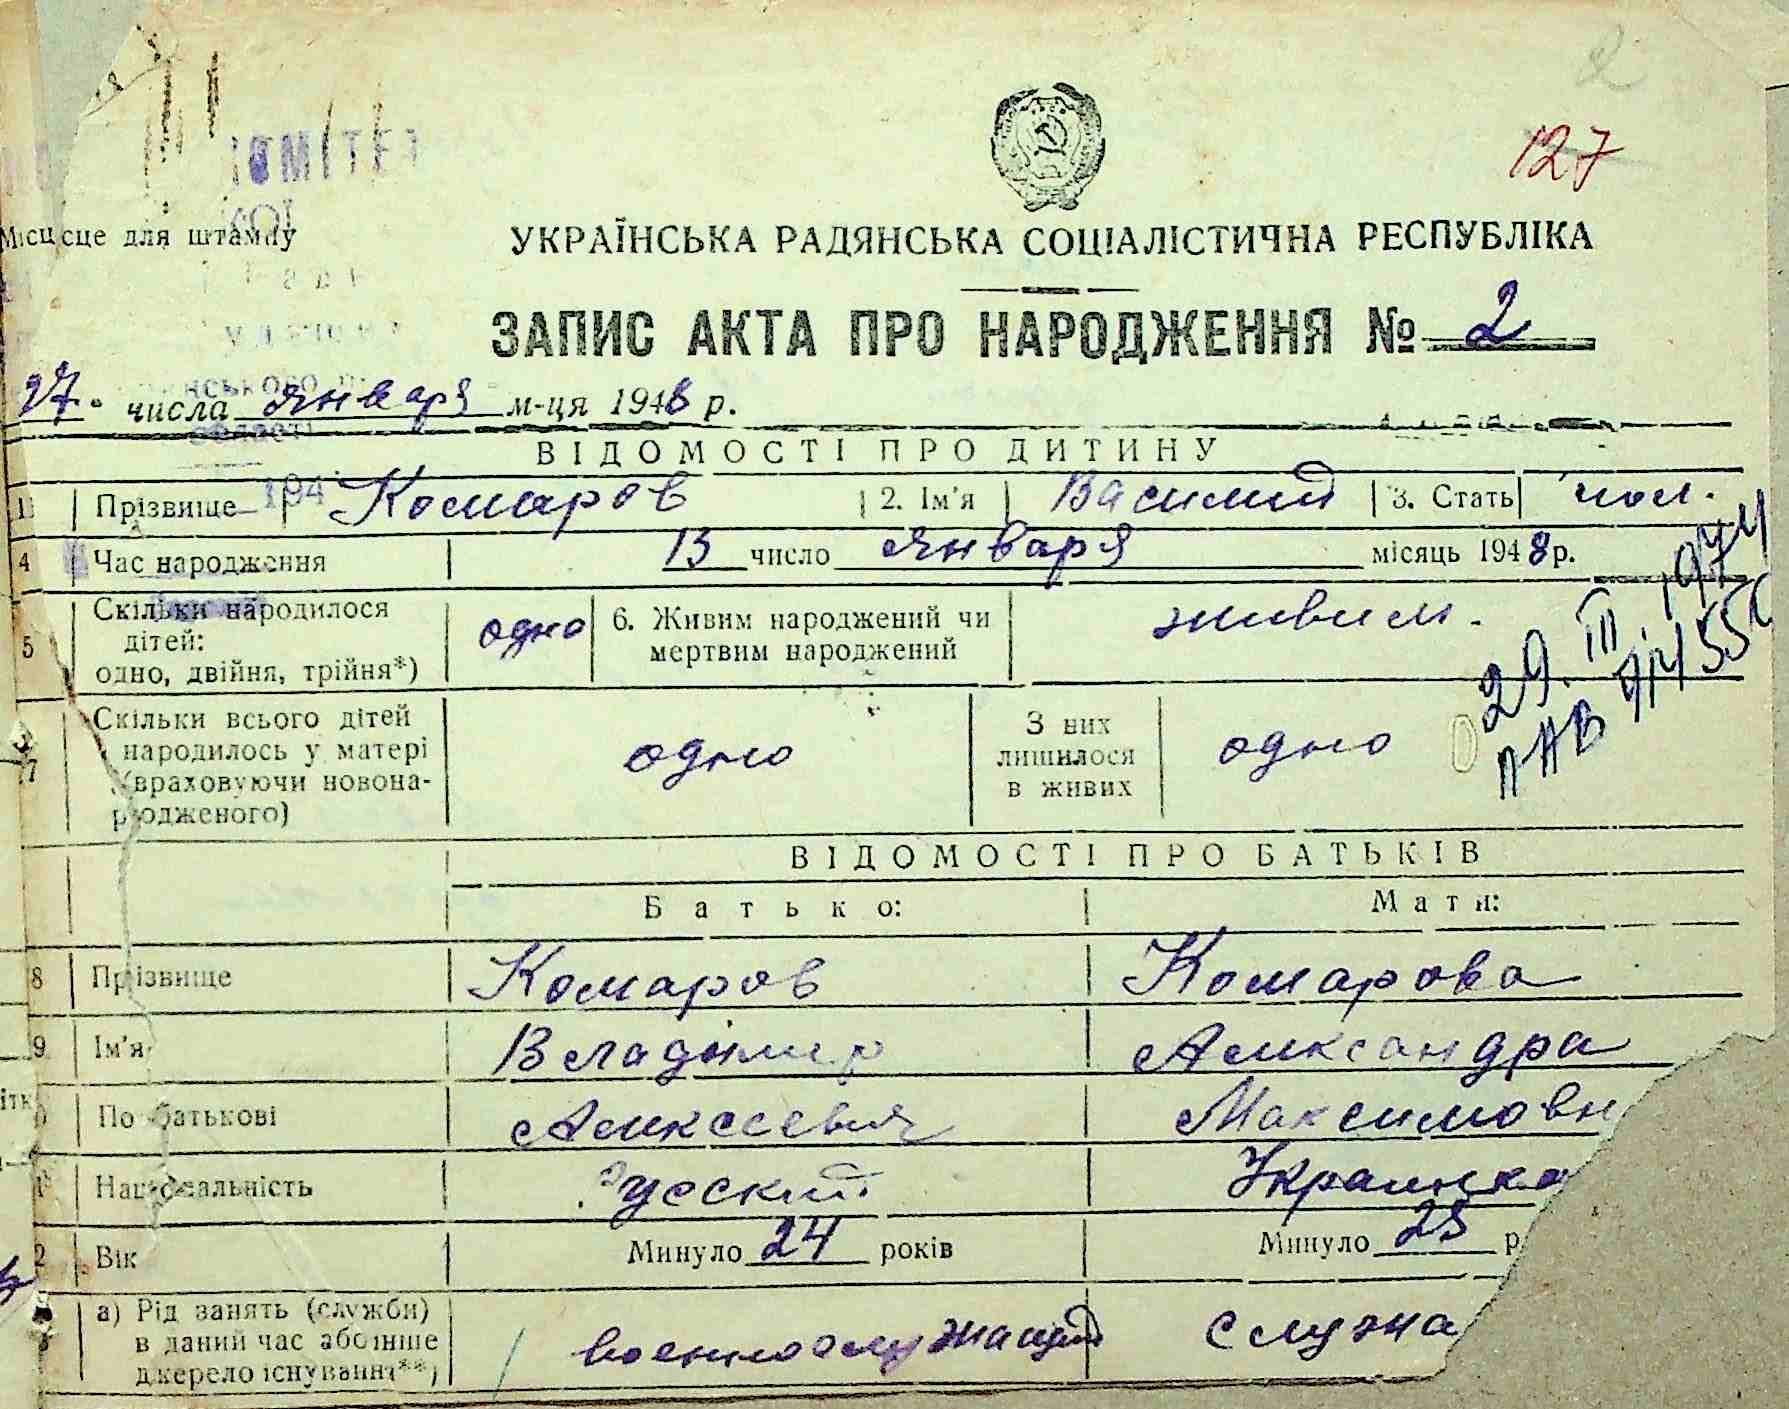 2
127
КОМІТЕТ
Місце для штампу
УКРАЇНСЬКА РАДЯНСЬКА СОЦІАЛІСТИЧНА РЕСПУБЛІКА
ЗАПИС АКТА ПРО НАРОДЖЕННЯ № 2
27. числа января м-ця 1948 р.
області
ВІДОМОСТІ ПРО ДИТИНУ
194
1 Прізвище Комаров 2. Ім'я Василий 3. Стать чол.
4 Час народження 13 число января місяць 1948 р.
5 Скільки народилося дітей: одно, двійня, трійня*) одно 6. Живим народжений чи мертвим народжений живим.
29. III. 1974
7 Скільки всього дітей народилось у матері (враховуючи новонародженого) одно З них лишилося в живих одно
ВІДОМОСТІ ПРО БАТЬКІВ
Батько: Мати:
8 Прізвище Комаров Комарова
9 Ім'я Владимир Александра
По батькові Алексеевич Максимовн
Національність Русский Украинка
2 Вік Минуло 24 років Минуло 25 р
а) Рід занять (служби) в даний час або інше джерело існування**) военнослужащий служа